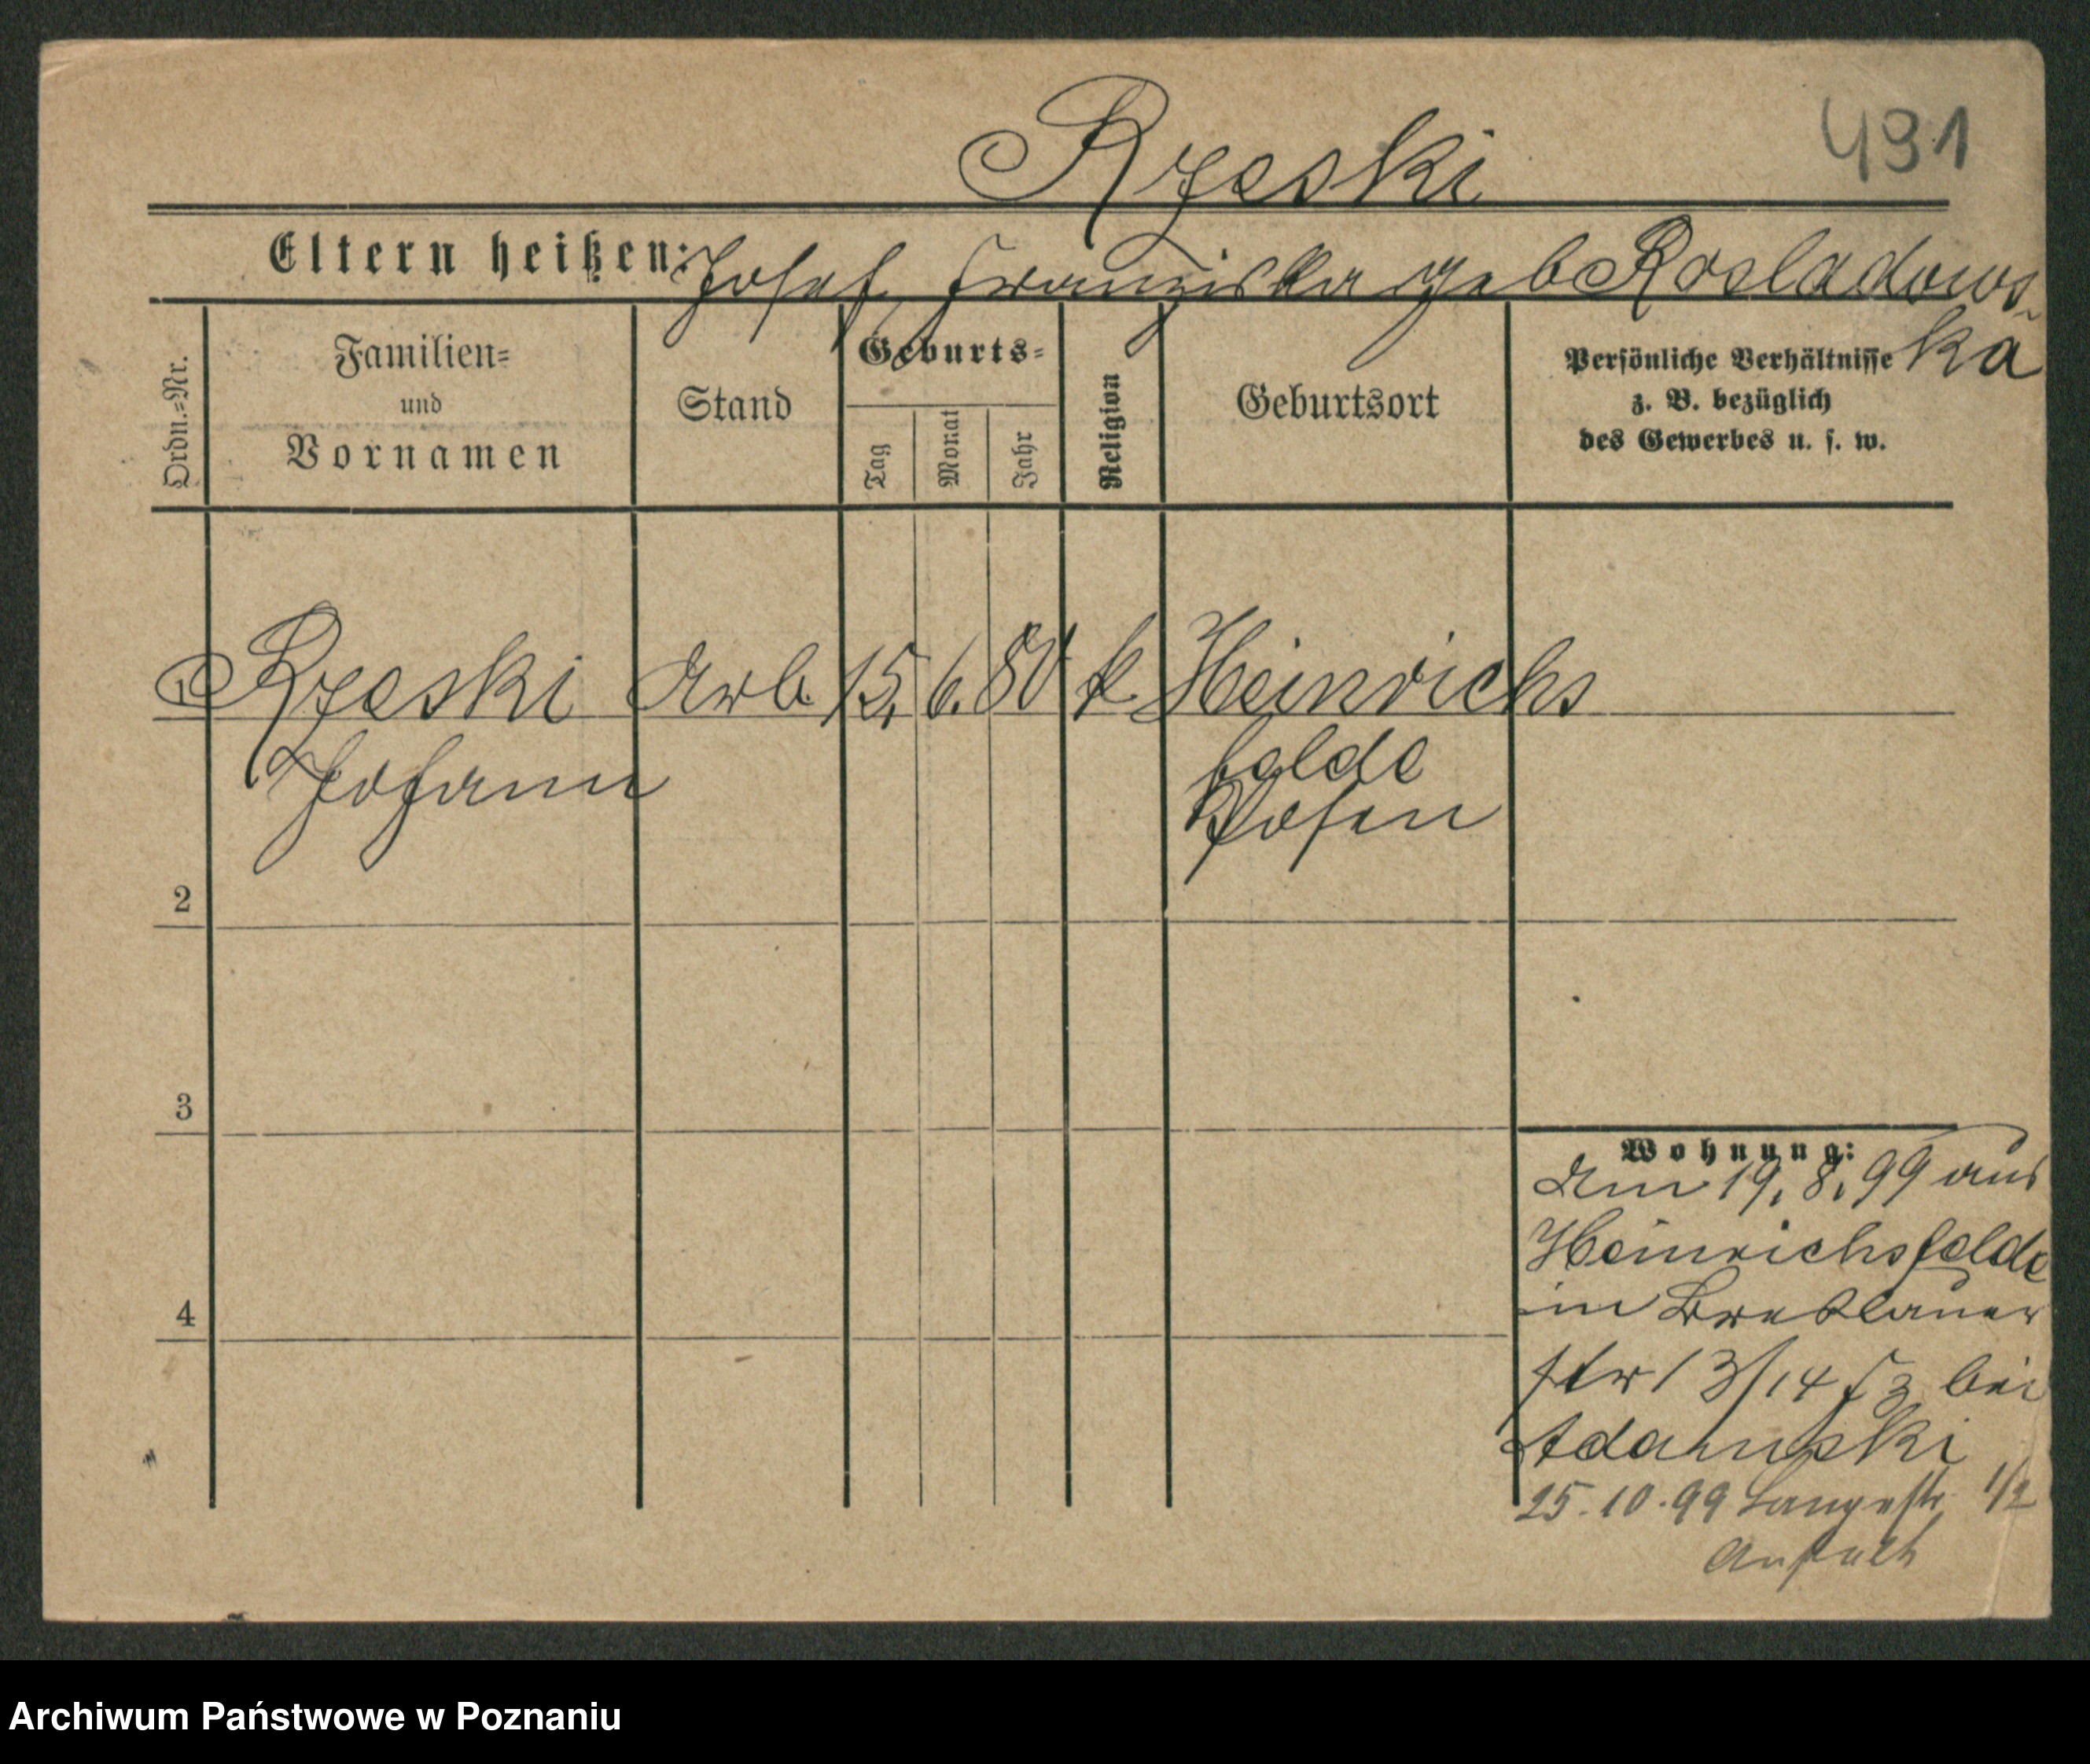 Rzeski
491
Eltern heißen: Josef, Franziska geb Rosladows
ka
Ordn.=Nr.
Familien=
und
Vornamen
Stand
Geburts=
Tag
Monat
Jahr
Religion
Geburtsort
Persönliche Verhältnisse
z. B. bezüglich
des Gewerbes u. s. w.
1 Rzeski Arb. 15. 6. 80 k. Heinrichs
Johann
felde
Posen
2
3
4
Wohnung:
Am 19. 8. 99 aus
Heinrichsfelde
in Breslauer
str 13/14 bei
Adamski
25.10.99 Langestr 1/2